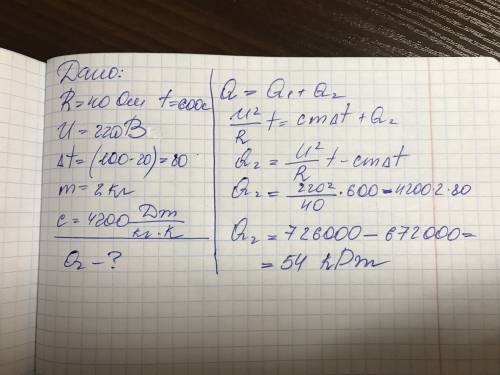 Дано:
R=40 Ом t=600с
U=220В
Δt=(100-20)=80
m=2кг
c=4200 Dm/кг·K
Q₂-?
Q = Q₁+Q₂
U²/R t= cmΔt+Q₂
Q₂= U²/R t-cmΔt
Q₂= 220²/40 ·600-4200·2·80
Q₂=726000-672000=
=54 kDm